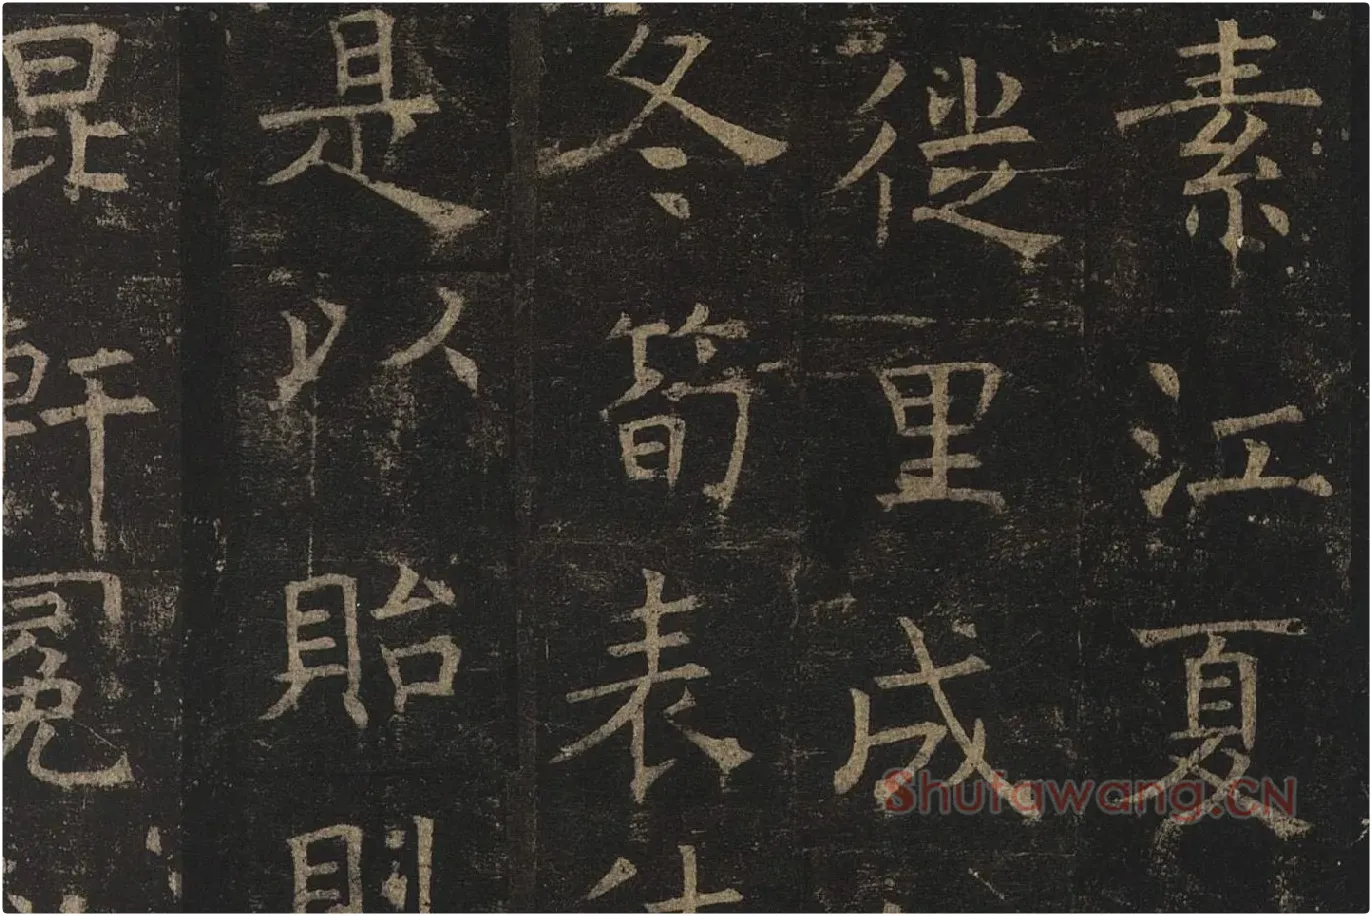 素江夏
徙里成
冬筍表
是以貽則
昆軒冕
Shufawang.CN